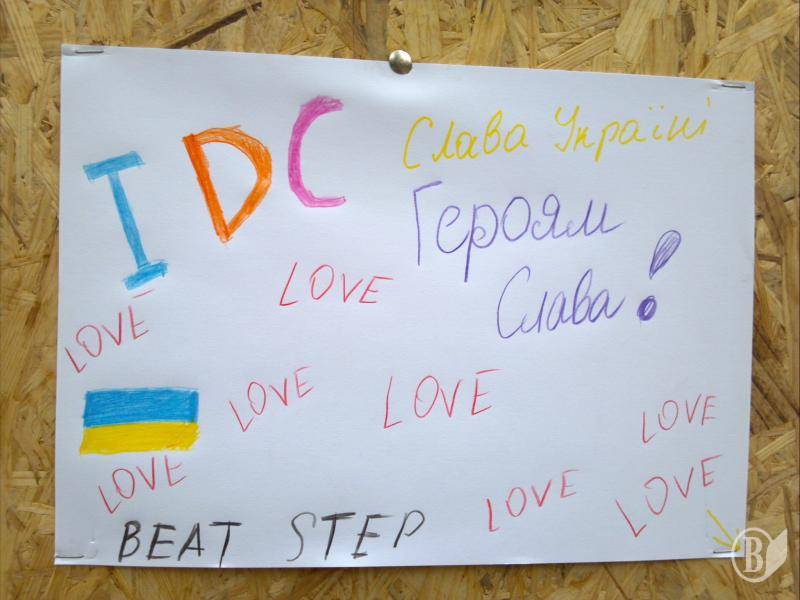 IDC
Слава Україні
Героям
Слава!
LOVE
LOVE
LOVE
LOVE
LOVE
LOVE
LOVE
LOVE
BEAT STEP
B